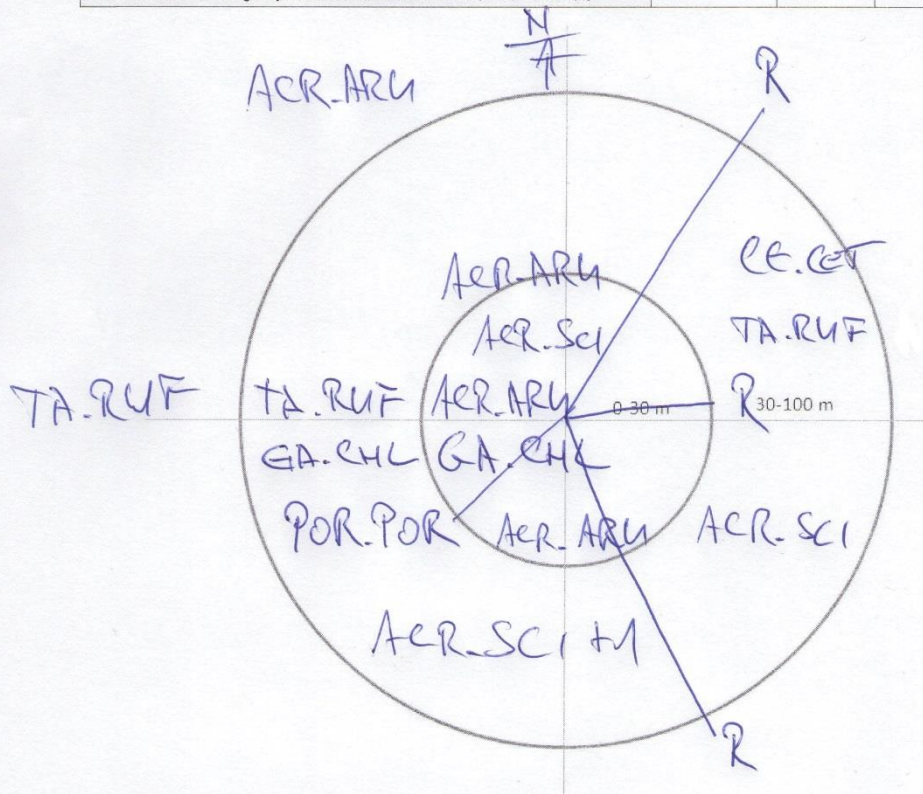 N
R
ACR.ARU
ACR.ARU
CE.CET
ACR.SCI
TA.RUF
TA.RUF
TA.RUF
ACR.ARU
0-30 m
R
30-100 m
GA.CHL
GA.CHL
POR.POR
ACR.ARU
ACR.SCI
ACR.SCI +1
R